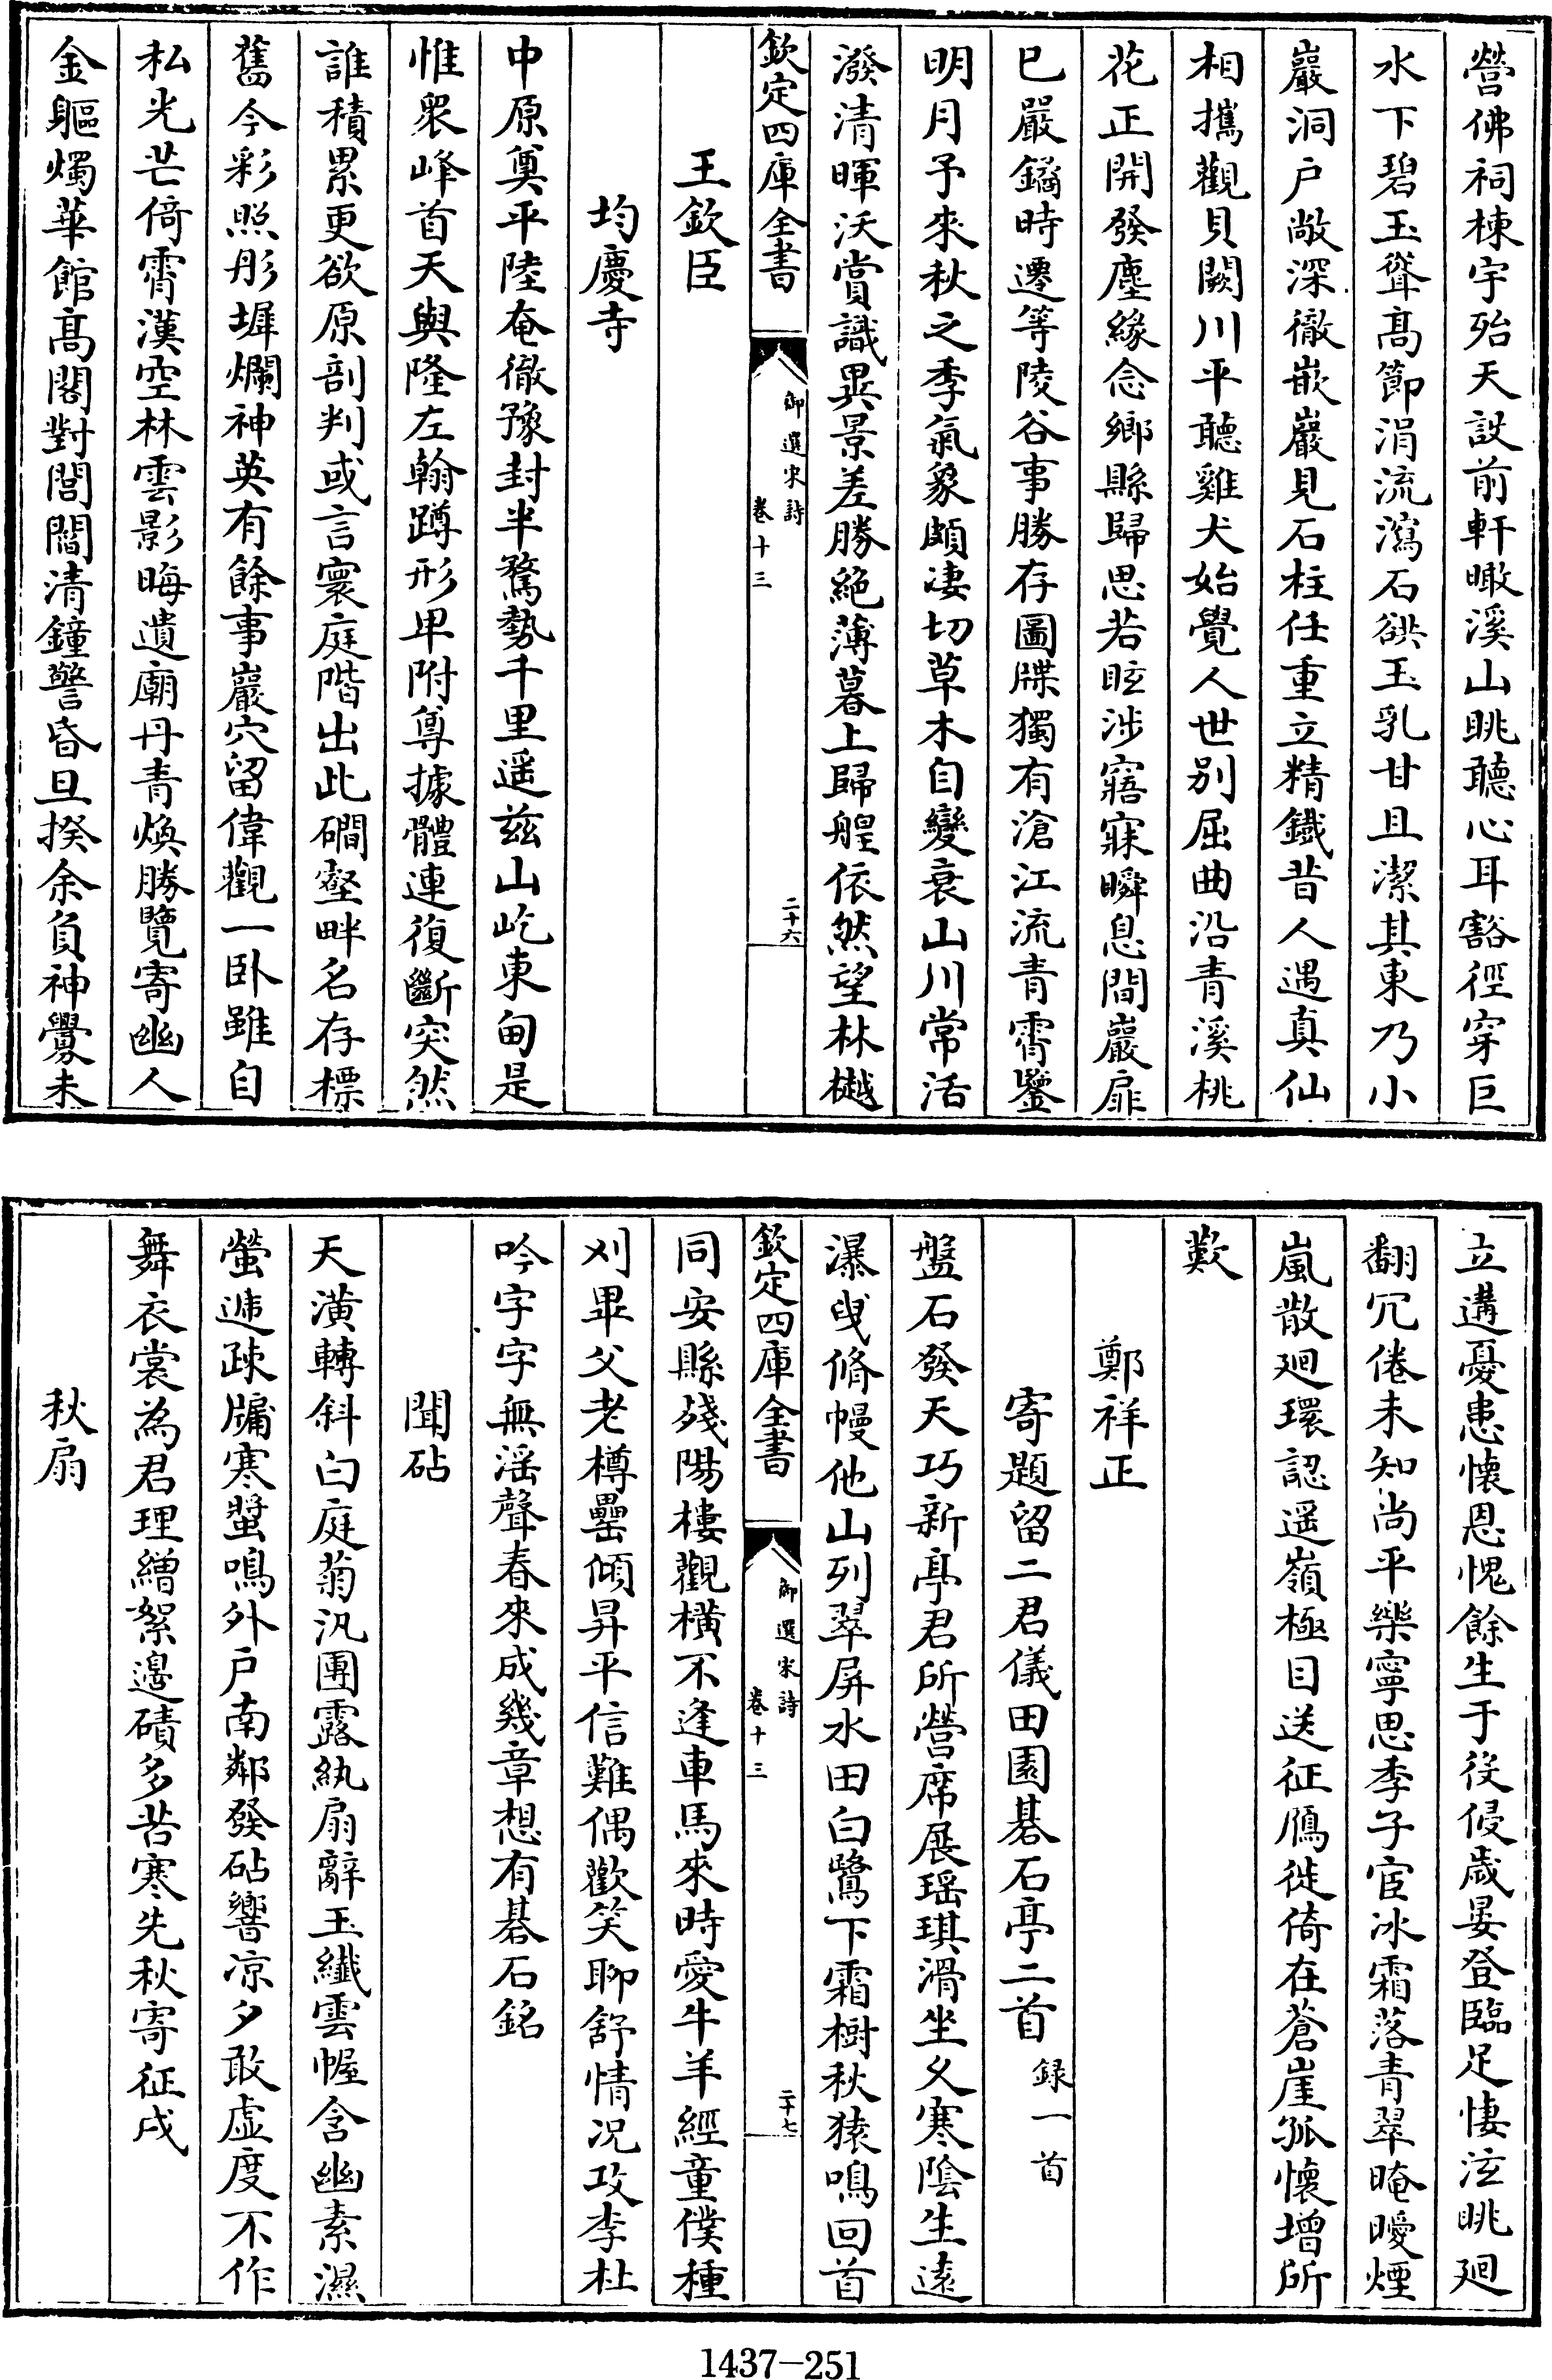 營佛祠棟宇殆天設前軒瞰溪山眺聽心耳豁徑穿巨
水下碧玉聳髙節涓流瀉石谼玉乳甘且潔其東乃小
巖洞户敞深徹嵌巖見石柱任重立精鐵昔人遇真仙
相攜觀貝闕川平聽雞犬始覺人世别屈曲沿青溪桃
花正開發塵緣念鄉縣歸思若眩涉寤寐瞬息間巖扉
已嚴鐍時遷等陵谷事勝存圖牒獨有滄江流青霄鑒
明月予來秋之季氣象頗凄切草木自變衰山川常活
潑清暉沃賞識異景差勝絶薄暮上歸艎依然望林樾
欽定四庫全書
御選宋詩
卷十三
二十六
王欽臣
均慶寺
中原奠平陸奄徹豫封半騖勢千里遥兹山屹東甸是
惟衆峰首天與隆左翰蹲形卑附尊據體連復斷突然
誰積累更欲原剖判或言寰庭階出此磵壑畔名存標
舊今彩照彤墀爛神英有餘事巖穴留偉觀一卧雖自
私光芒倚霄漢空林雲影晦遺廟丹青煥勝覽寄幽人
金軀燭華館髙閣對閭閻清鐘警昏旦揆余負神釁未
立遘憂患懷恩愧餘生于役侵歳晏登臨足悽泫眺迴
翻冗倦未知尚平樂寧思季子宦冰霜落青翠晻曖煙
嵐散迴環認遥嶺極目送征鴈徙倚在蒼崖孤懷增所
歎
鄭祥正
寄題留二君儀田園碁石亭二首 録一首
盤石發天巧新亭君所營席展瑶琪滑坐久寒陰生遠
瀑曳脩幔他山列翠屏水田白鷺下霜樹秋猿鳴回首
欽定四庫全書
御選宋詩
卷十三
二十七
同安縣殘陽樓觀横不逢車馬來時愛牛羊經童僕種
刈畢父老樽罍傾昇平信難偶歡笑聊舒情況攻李杜
吟字字無淫聲春來成幾章想有碁石銘
聞砧
天潢轉斜白庭菊汎團露紈扇辭玉纖雲幄含幽素濕
螢遞疎牖寒螿鳴外户南鄰發砧響凉夕敢虚度不作
舞衣裳為君理繒絮邊磧多苦寒先秋寄征戍
秋扇
1437-251